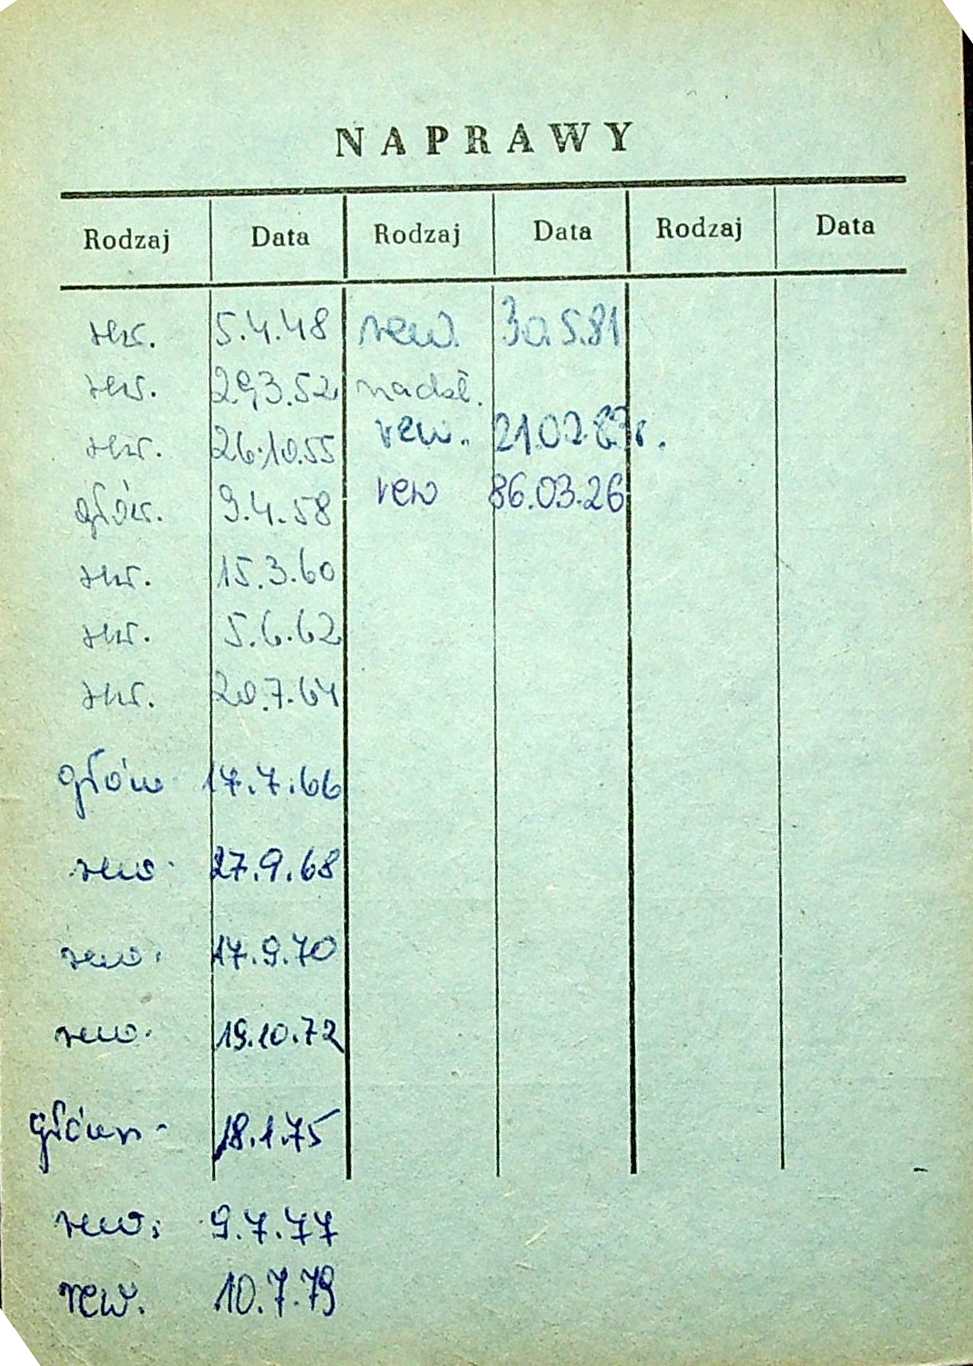 NAPRAWY
Rodzaj Data Rodzaj Data Rodzaj Data
rew. 5.4.48 rew. 30.5.81
rew. 29.3.52 nadzł.
rew. 26.10.55 rew. 21.02.83r.
głów. 9.4.58 rew 86.03.26
rew. 15.3.60
rew. 5.6.62
rew. 20.7.64
głów 17.7.66
rew. 27.9.68
rew. 17.9.70
rew. 19.10.72
główn. 18.1.75
rew. 9.7.77
rew. 10.7.79